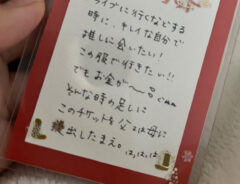 ライブに行くなどする
時に、キレイな自分で
推しに会いたい!
この服で行きたい!!
でもお金が〜
そんな時の足しに
このチケットを父又は母に
提出したまえ。